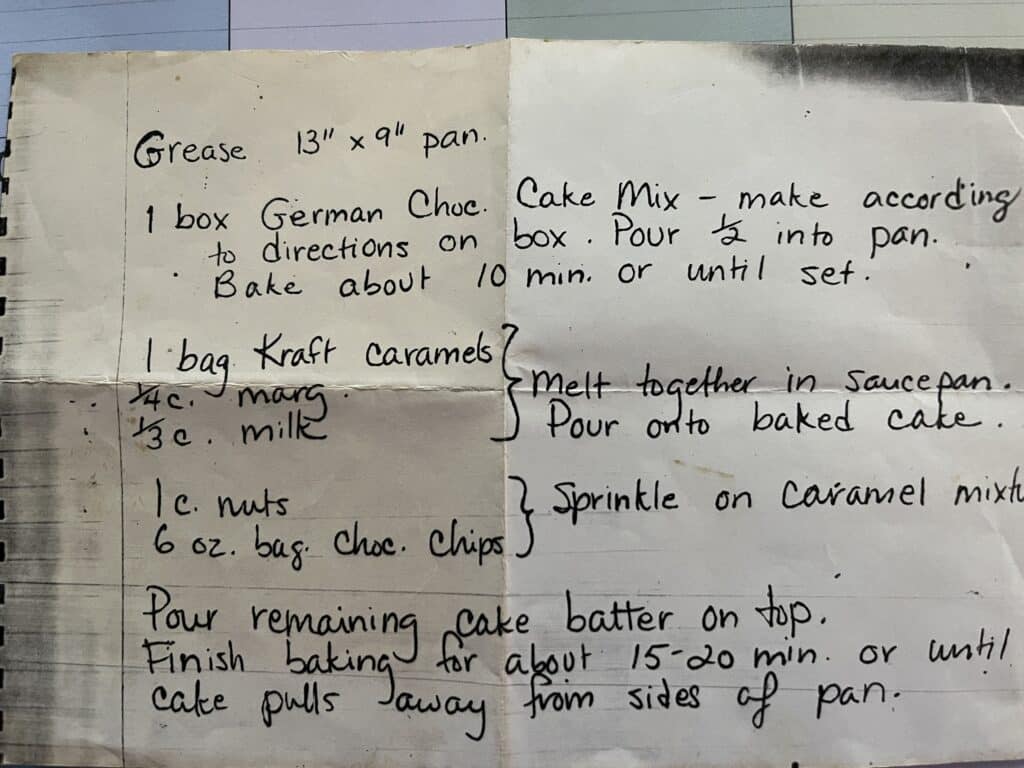 Grease 13" x 9" pan.
1 box German Choc. Cake Mix - make according
to directions on box. Pour 1/2 into pan.
Bake about 10 min. or until set.
1 bag Kraft caramels } Melt together in saucepan.
1/4 c. marg. Pour onto baked cake.
1/3 c. milk
1 c. nuts } Sprinkle on caramel mixtu
6 oz. bag. choc. chips
Pour remaining cake batter on top.
Finish baking for about 15-20 min. or until
cake pulls away from sides of pan.